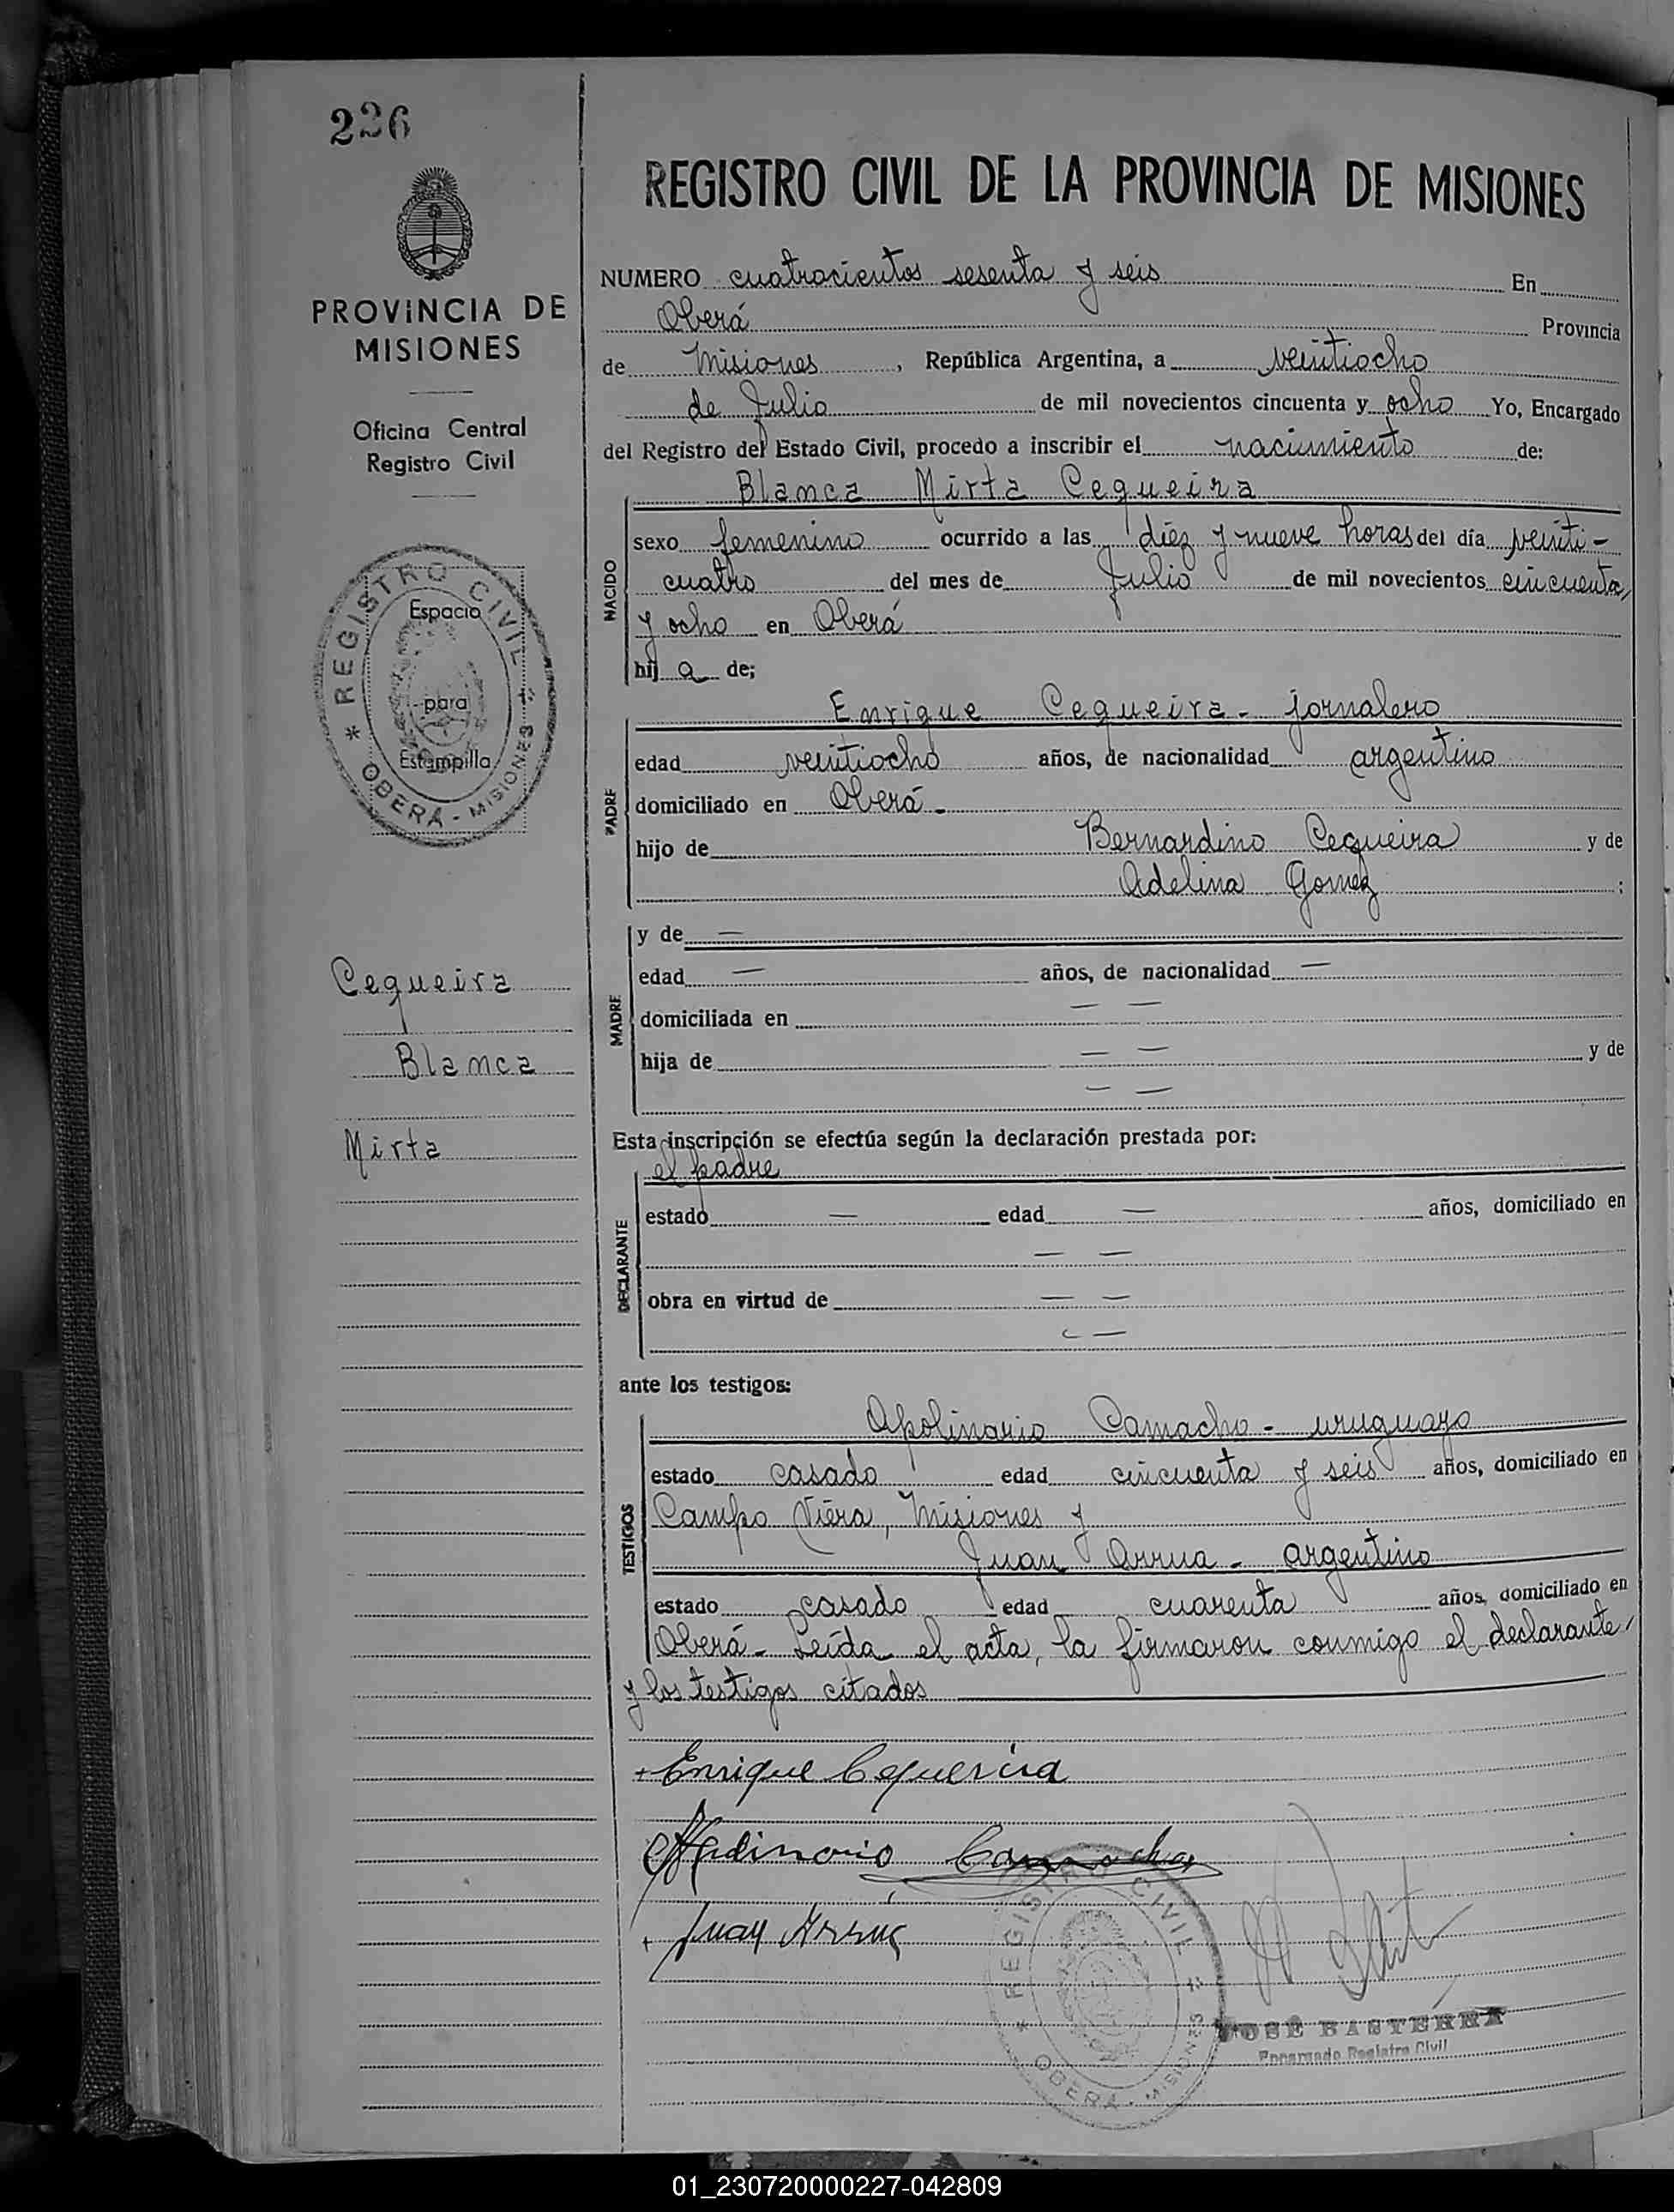 226
PROVINCIA DE
MISIONES
Oficina Central
Registro Civil
REGISTRO CIVIL
Espacio
para
Estampilla
OBERÁ - MISIONES
Cequeira
Blanca
Mirta
REGISTRO CIVIL DE LA PROVINCIA DE MISIONES
NUMERO cuatrocientos sesenta y seis En
Oberá Provincia
de Misiones, República Argentina, a veintiocho
de Julio de mil novecientos cincuenta y ocho Yo, Encargado
del Registro del Estado Civil, procedo a inscribir el nacimiento de:
Blanca Mirta Cequeira
NACIDO
sexo femenino ocurrido a las diez y nueve horas del día veinti-
cuatro del mes de Julio de mil novecientos cincuenta
y ocho en Oberá
hij a de;
Enrique Cequeira - jornalero
PADRE
edad veintiocho años, de nacionalidad argentino
domiciliado en Oberá -
hijo de Bernardino Cequeira y de
Adelina Gomez ;
MADRE
y de —
edad — años, de nacionalidad —
domiciliada en — —
hija de — — y de
— —
Esta inscripción se efectúa según la declaración prestada por:
el padre
DECLARANTE
estado — edad — años, domiciliado en
— —
obra en virtud de — —
— —
ante los testigos:
Apolinario Camacho - uruguayo
TESTIGOS
estado casado edad cincuenta y seis años, domiciliado en
Campo Viera, Misiones y
Juan Arrua - argentino
estado casado edad cuarenta años, domiciliado en
Oberá - Leída el acta, la firmaron conmigo el declarante
y los testigos citados
Enrique Cequeira
Apolinario Camacho
Juan Arrúa
REGISTRO CIVIL
OBERÁ - MISIONES
JOSÉ BASTERRA
Encargado Registro Civil
01_230720000227-042809